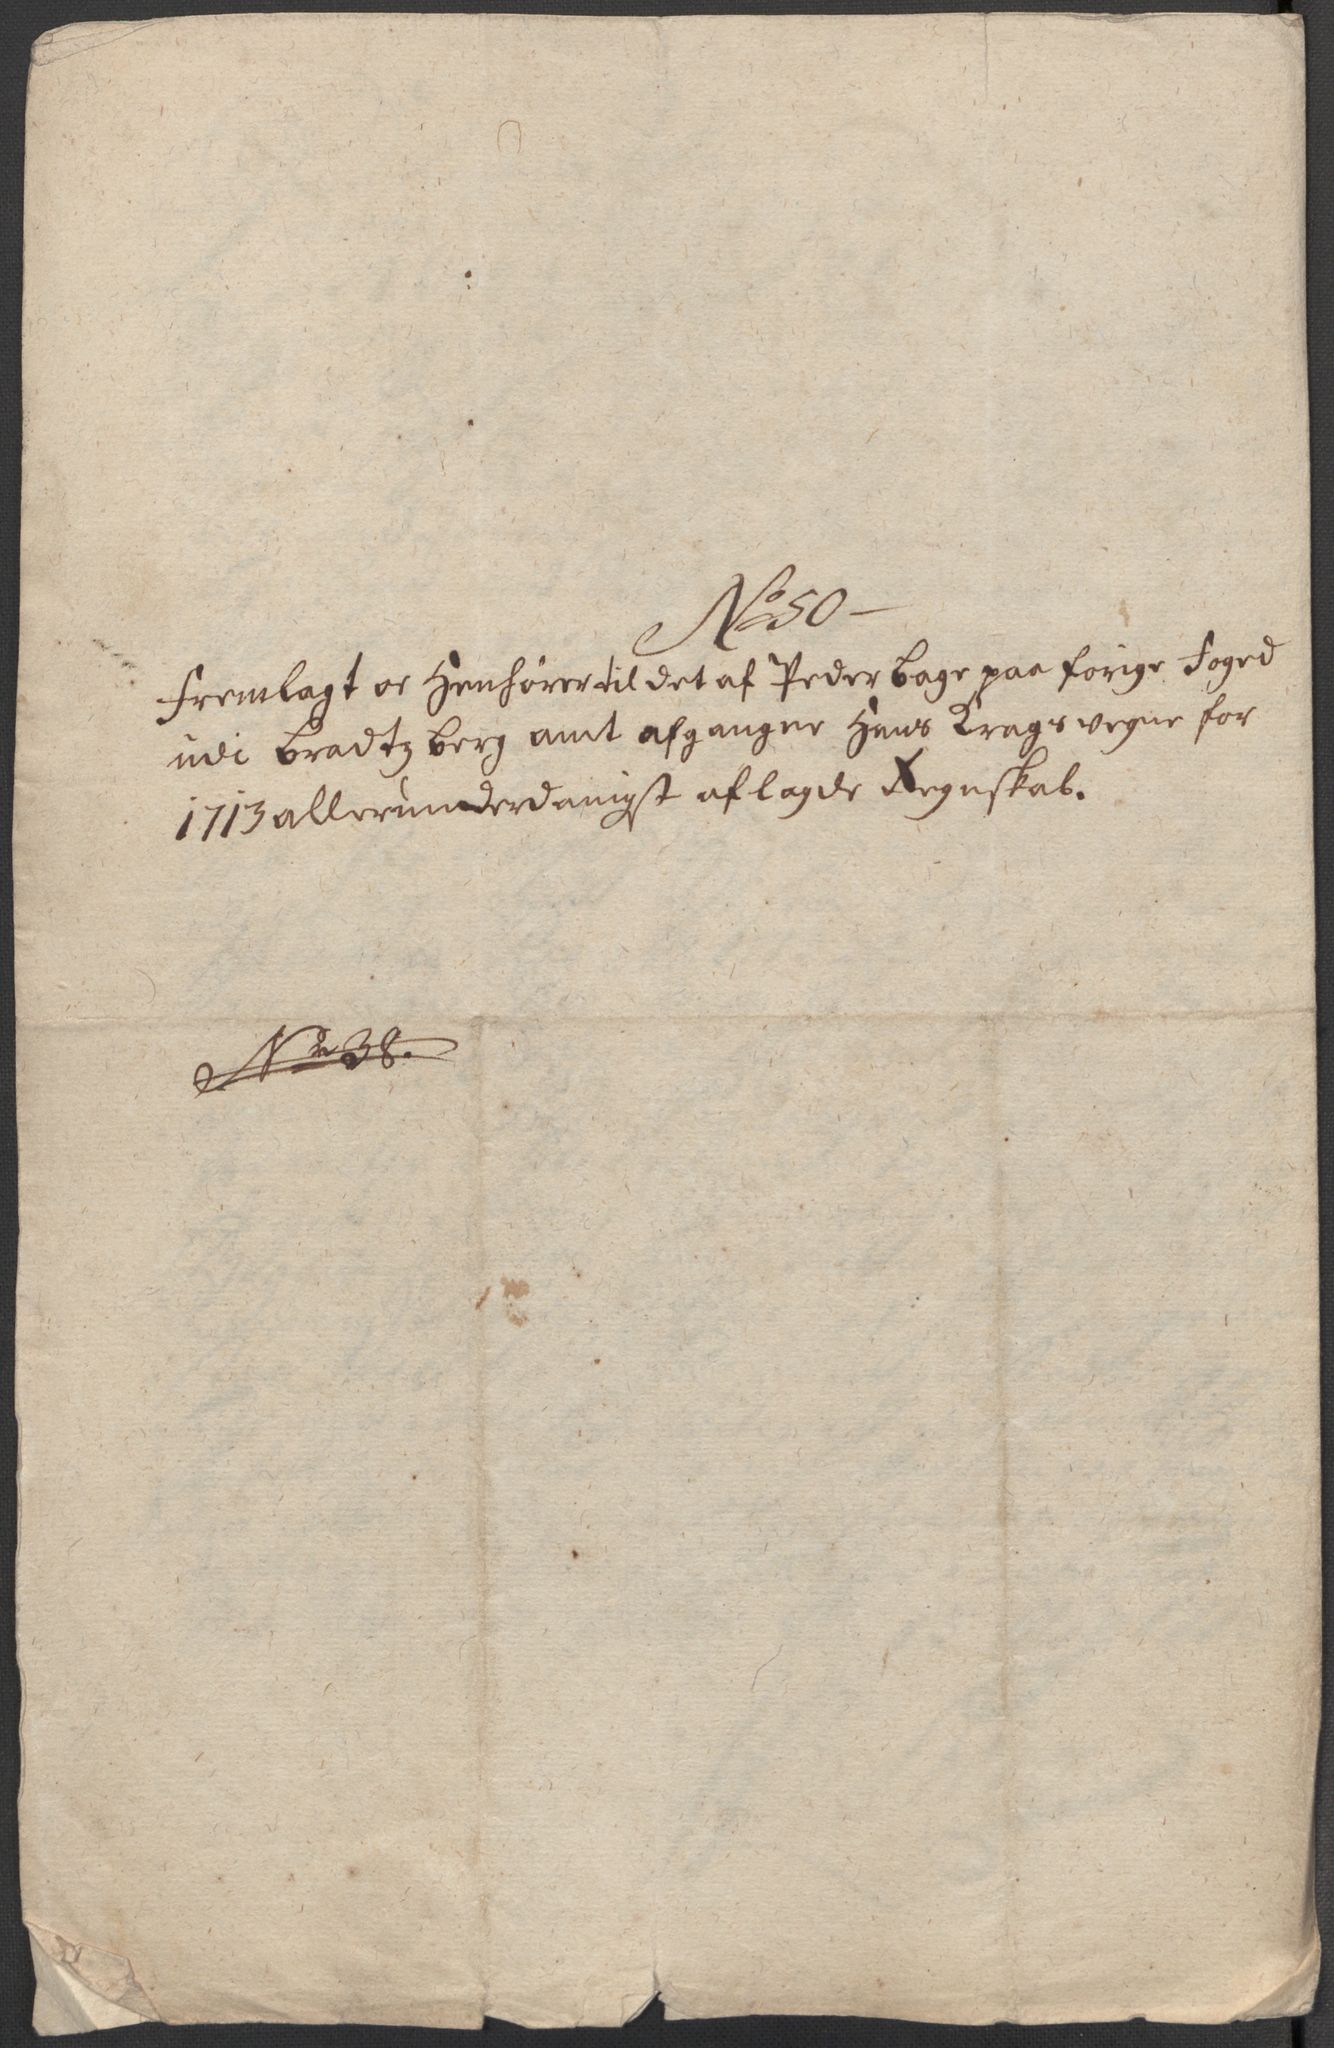 No 50
Fremlagt oc Henhörer til det af Peder Bage paa forige Foged
udi Bradtzberg amt afgangne Hans Krags vegne for
1713 allerunderdanigst aflagde Regnskab.
No 38.